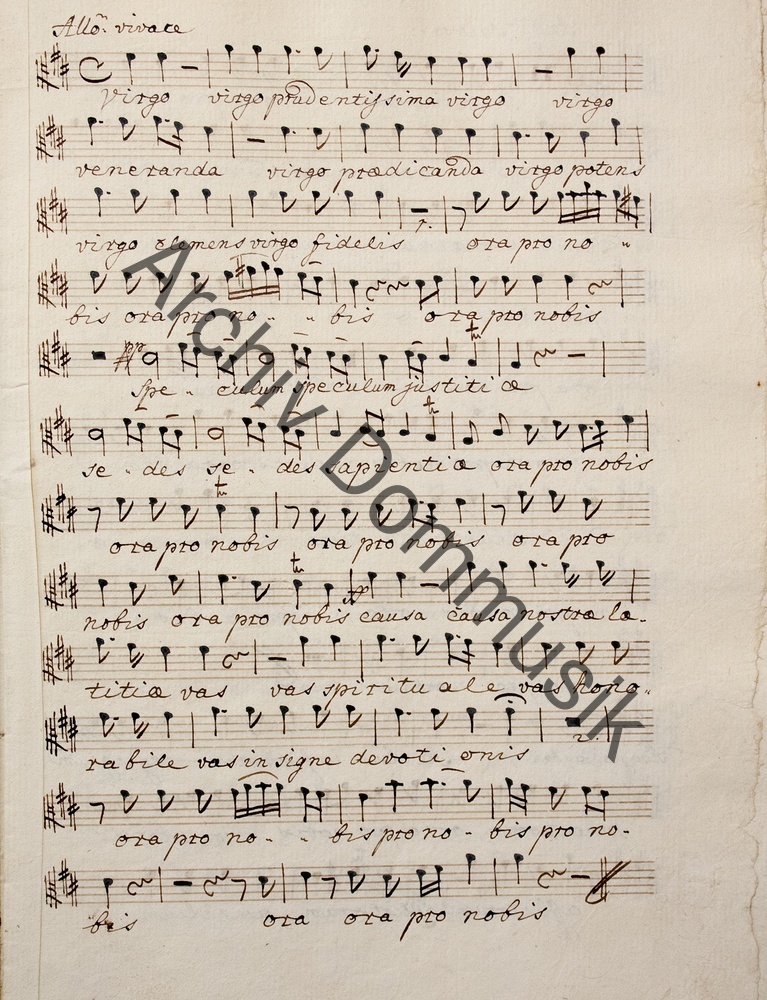 Allo: vivace
Virgo virgo prudentissima virgo virgo
veneranda virgo prædicanda virgo potens
virgo clemens virgo fidelis ora pro no "
7.
bis ora pro no - - bis ora pro nobis
pp
tr
Spe - culum speculum justitiæ
tr
se - des se - des sapientiæ ora pro nobis
tr
ora pro nobis ora pro nobis ora pro
tr
nobis ora pro nobis causa causa nostræ læ -
titiæ vas vas spirituale vas hono -
rabile vas insigne devotionis
2.
ora pro no - - bis pro no - bis pro no -
bis ora ora pro nobis
Archiv Dommusik